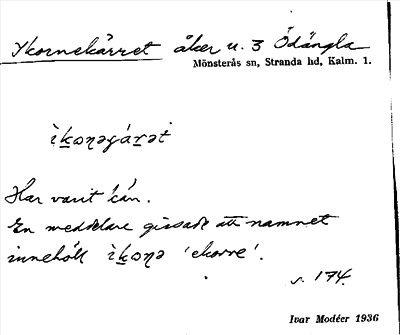 Ikornekärret åker u. 3 Ödängla
Mönsterås sn, Stranda hd, Kalm. 1.
ìkoṇəgáṟət
Har varit kän.
En meddelare gissade att namnet
innehöll ìkoṇə 'ekorre'.
s. 174.
Ivar Modéer 1936